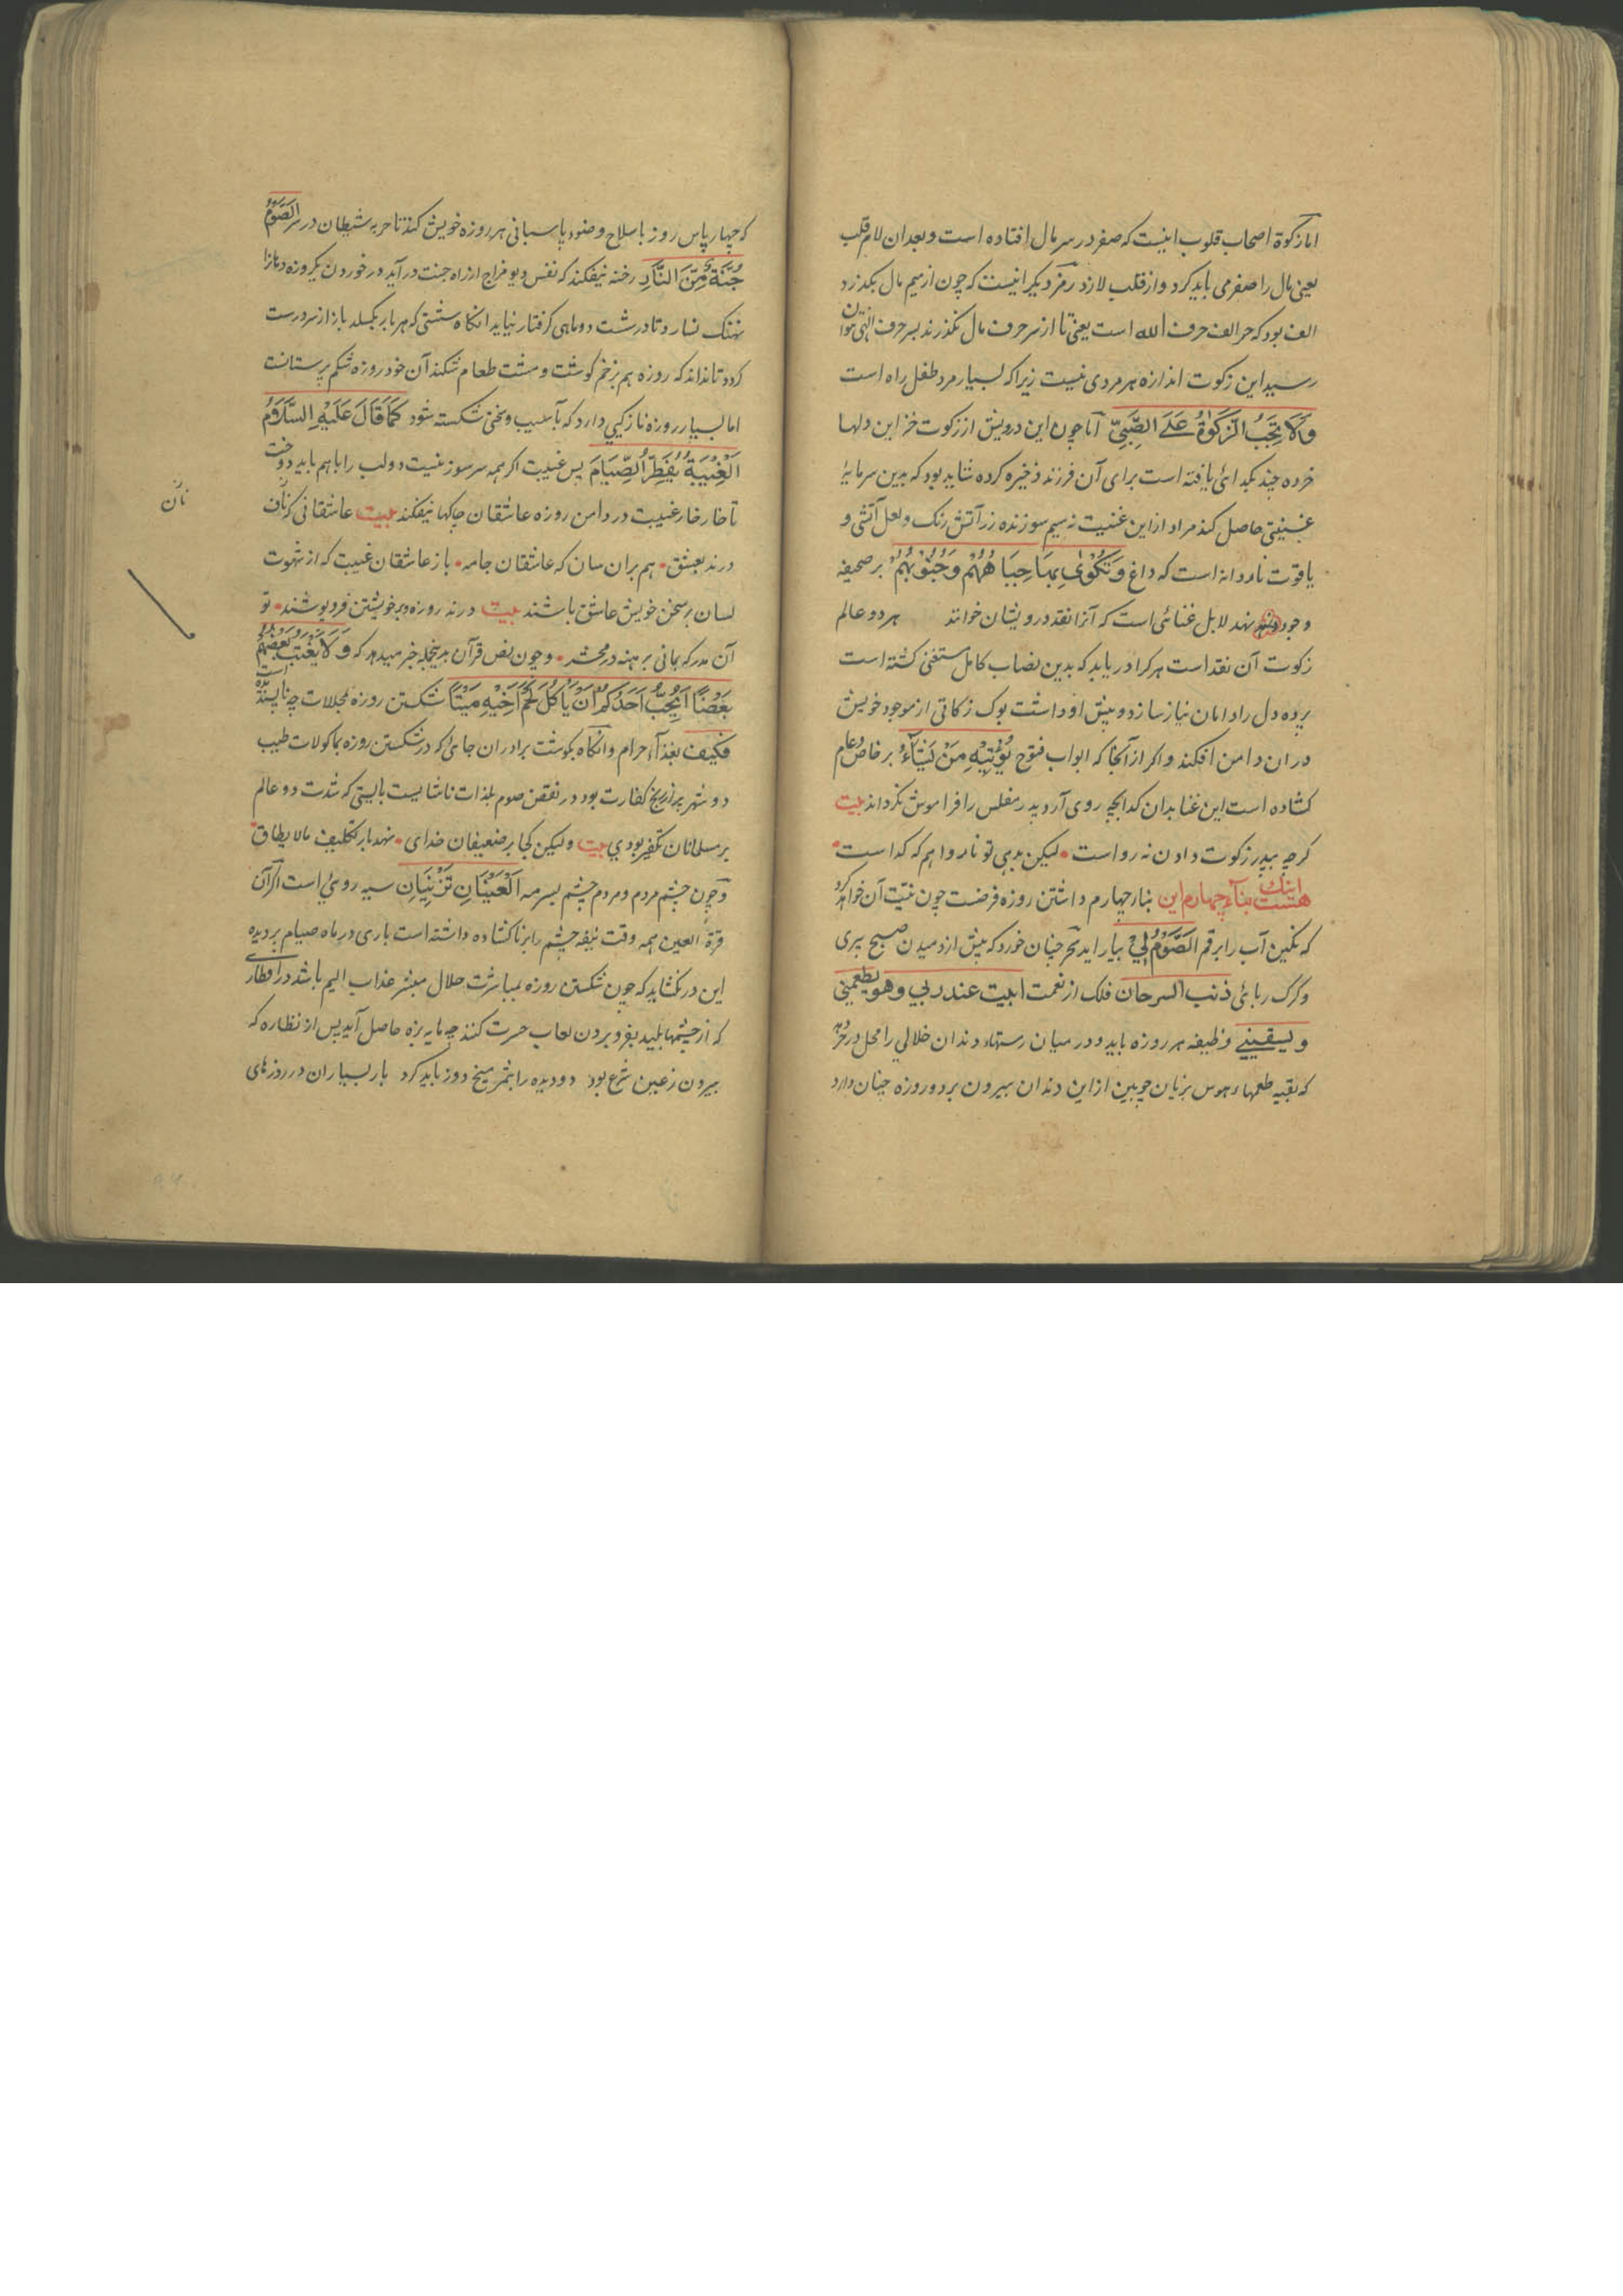 اما زکوة اصحاب قلوب اینست که صفر در سر مال افتاده است و بعد ان لام قلب
یعنی مال را صفر می باید کرد و از قلب لازد رمز دیگر اینست که چون از میم مال بگذرد
الف بود که حر الف حرف الله است یعنی تا از سر حرف مال نگذرند بسر حرف الهی نتوان
رسید این زکوت اندازه هر مردی نیست زیرا که بسیار مرد طفل راه است
وَلَا تَجِبُ الزَّکَوٰةُ عَلَی الصَّبِیِّ اما چون این درویش از زکوت خزاین دلها
خرده چند بکدائی یافته است برای آن فرزند ذخیره کرده شاید بود که بدین سرمایهٔ
غنیتی حاصل کند مراد ازین غنیت نه سیم سوزنده زر آتش رنک و لعل آتشی و
یاقوت ناردانه است که داغ وَتُکْوٰی بِهَا جِبَاهُهُمْ وَجُنُوْبُهُمْ بر صحیفه
وجود نهند لابل غنائی است که آنرا نقد درویشان خوانند هر دو عالم
زکوت آن نقد است هر کرا دریابد که بدین نصاب کامل مستغنی کشته است
پرده دل را دامان نیاز سازد و پیش او داشت بوک زکاتی از موجود خویش
در ان دامن افکند و اکر از آنجا که ابواب فتوح یُؤْتِیْهِ مَنْ یَّشَآءُ بر خاص و عام
کشاده است این غنا بدان کدا بچه روی آرد پدر مفلس را فراموش نکرداند بیت
کرچه بپدر زکوت دادن نه رواست • لیکن بدهی تو نارواهم که کداست •
اینک هست بناء چهارم این بناء چهارم داشتن روزه فرضست چون نیت آن خواهد کرد
که نکین آب را بر قم الصَّوْمُ لِیْ بیاراید سحر چنان خورد که پیش از دمیدن صبح ببری
وکرک ربائی ذنب السرحان فلک از نعمت ابیت عند ربی وهو یطعمنی
ویسقینی وظیفه هر روزه باید و در میان رستهاء دندان خلالی را محل در خرد
که بقیه طعمهاء هوس بزبان چوبین از این دندان بیرون برد و روزه چنان دارد
که چهار پاس روز با سلاح وضوء پاسبانی هر روزه خویش کند تا حربه شیطان در سر الصَّوْمُ
جُنَّةٌ مِّنَ النَّارِ رخنه نیفکند که نفس دیو مزاج از راه جنت در آید و در خوردن یکروزه دهانرا
نهنک نسازد تا در شست دو ماهی کرفتار نیاید انکاه شستی که هر بار بکسلد باز از سر درست
کردد تا نداند که روزه هم بزخم کوشت و مشت طعام شکند آن خود روزه شکم پرستانست
اما بسیار روزه نازکی دارد که بآسیب و سخنی شکسته شود کَمَا قَالَ عَلَیْهِ السَّلَامُ
اَلْغِیْبَةُ یُفَطِّرُ الصِّیَامَ پس غیبت اکر همه سر سوز نیست دو لب را باهم باید دوخت
تا خار خار غیبت در دامن روزه عاشقان چاکها نیفکند بیت عاشقانی کزنان
نان
درند بعشق • هم بران سان که عاشقان جامه • باز عاشقان غیبت که از شهوت
لسان بر سخن خویش عاشق باشند بیت درند روزه و بر خویشتن فرو پوشند • تو
آن مدر که بمانی برهنه در محشر • و چون نص قرآن بدینجمله خبر میدهد که وَلَا یَغْتَبْ بَعْضُکُمْ
بَعْضًا اَیُحِبُّ اَحَدُکُمْ اَنْ یَّاْکُلَ لَحْمَ اَخِیْهِ مَیْتًا شکستن روزه بحلالات چه ناپسندیده است
فکیف بغذاء حرام و انکاه بکوشت برادران جائی که در شکستن روزه بماکولات طیب
دو شهر کفارت بود در نقض صوم بلذات ناشایست بایستی که شدت دو عالم
بر مسلمانان تکفیر بودی بیت ولیکن کجا بر ضعیفان خدای • نهد بار تکلیف مالا یطاق •
و چون چشم مردم و مردم چشم بسرمه اَلْعَیْنَانِ تَزْنِیَانِ سیه روئی است اکر آن
قرة العین همه وقت چشم را بر ناکشاده داشته است باری در ماه صیام بر دیده
این در نکشاید که چون شکستن روزه بمباشرت حلال مبشر عذاب الیم باشد در افطاری
که از چشمهاء پلید بفرو بردن لعاب حسرت کنند چه مایه بزه حاصل آید پس از نظاره که
بیرون زعین شرع بود دو دیده را بشرم میخ دوز باید کرد بار بسیاران در روزهای